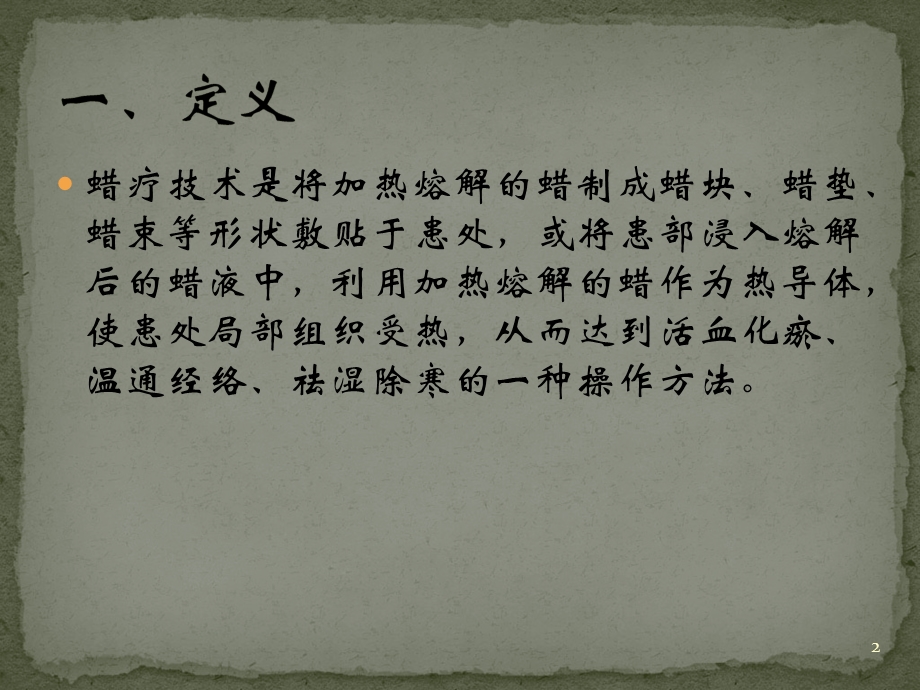 一、 定义
蜡疗技术是将加热熔解的蜡制成蜡块、蜡垫、
蜡束等形状敷贴于患处，或将患部浸入熔解
后的蜡液中，利用加热熔解的蜡作为热导体，
使患处局部组织受热，从而达到活血化瘀、
温通经络、祛湿除寒的一种操作方法。
2